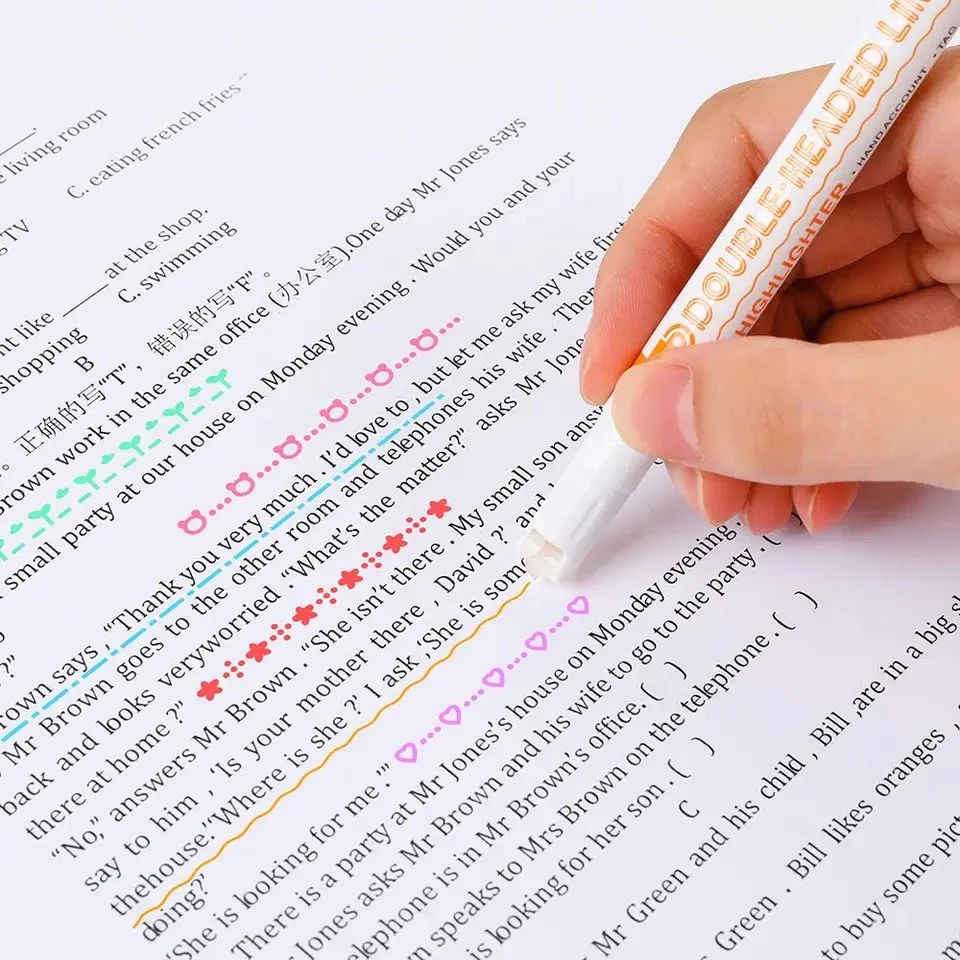 living room C. eating french fries"
TV
at the shop.
like C. swimming
shopping
B
。正确的写“T”， 错误的写“F”。
work in the same office (办公室).One day Mr Jones says
small party at our house on Monday evening . Would you and your
says ,“Thank you very much . I'd love to , but let me ask my wife first
Mr Brown goes to the other room and telephones his wife .
back and looks veryworried . “What's the matter?” asks Mr
there at home ?”
“No,” answers Mr Brown . “She isn't there . My small son
say to him , ‘Is your mother there , David ?’ and
thehouse.‘Where is she ?’ I ask ,‘She is
doing?’
‘She is looking for me .’”
There is a party at Mr Jones's house on Monday evening.
Jones asks Mr Brown and his wife to go to the party . (
is in Mr Brown's office. ( )
speaks to Mrs Brown on the telephone . ( )
is looking for her son . ( )
C
Mr Green and his child , Bill ,are in a big
Green . Bill likes oranges ,
to buy some
DOUBLE-HEADED
HIGHLIGHTER · HAND ACCOUNT · TAG